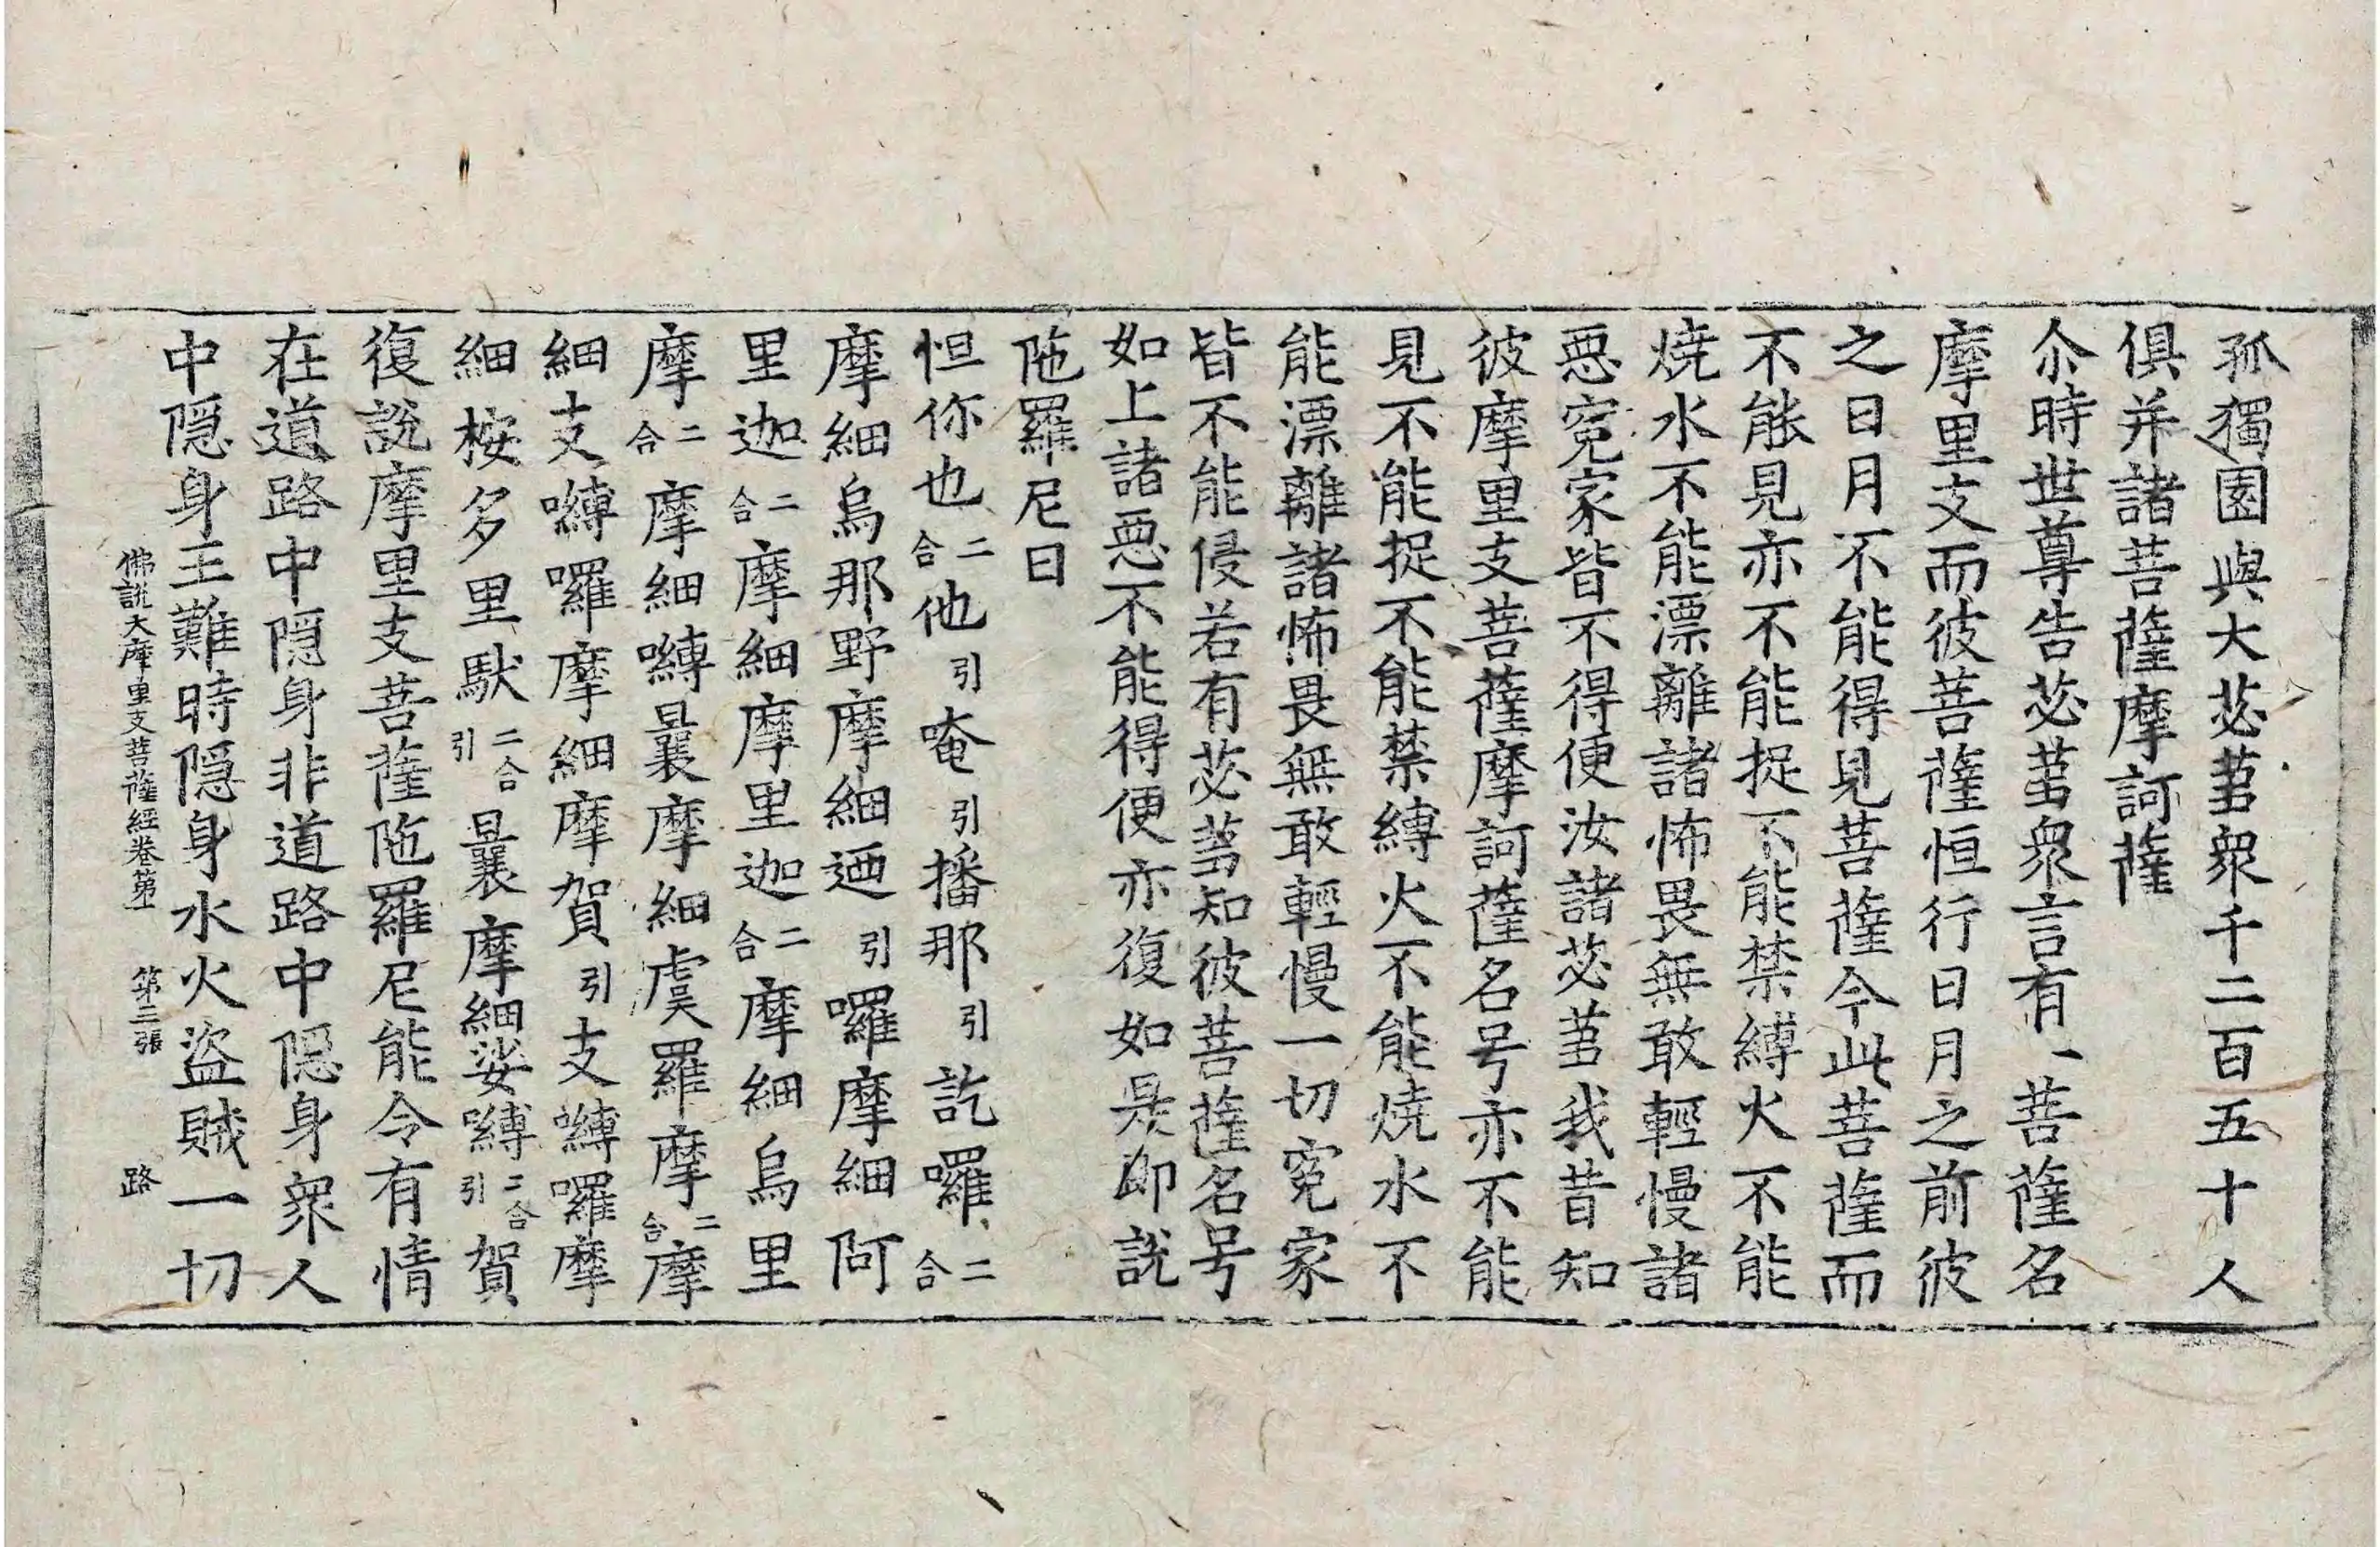 孤獨園與大苾蒭衆千二百五十人
俱并諸菩薩摩訶薩
尒時世尊告苾蒭衆言有一菩薩名
摩里支而彼菩薩恒行日月之前彼
之日月不能得見菩薩今此菩薩而
不能見亦不能捉不能禁縛火不能
燒水不能漂離諸怖畏無敢輕慢諸
惡寃家皆不得便汝諸苾蒭我昔知
彼摩里支菩薩摩訶薩名号亦不能
見不能捉不能禁縛火不能燒水不
能漂離諸怖畏無敢輕慢一切寃家
皆不能侵若有苾蒭知彼菩薩名号
如上諸惡不能得便亦復如是即說
陁羅尼曰
怛你也二合他引唵引播那引訖囉二合
摩細烏那野摩細廼引囉摩細阿
里迦二合摩細摩里迦二合摩細烏里
摩二合摩細嚩曩摩細虞羅摩二合摩
細支嚩囉摩細摩賀引支嚩囉摩
細桉多里馱二合引曩摩細娑嚩二合引賀
復說摩里支菩薩陁羅尼能令有情
在道路中隱身非道路中隱身衆人
中隱身王難時隱身水火盜賊一切
佛說大摩里支菩薩經卷第一 第二張 路